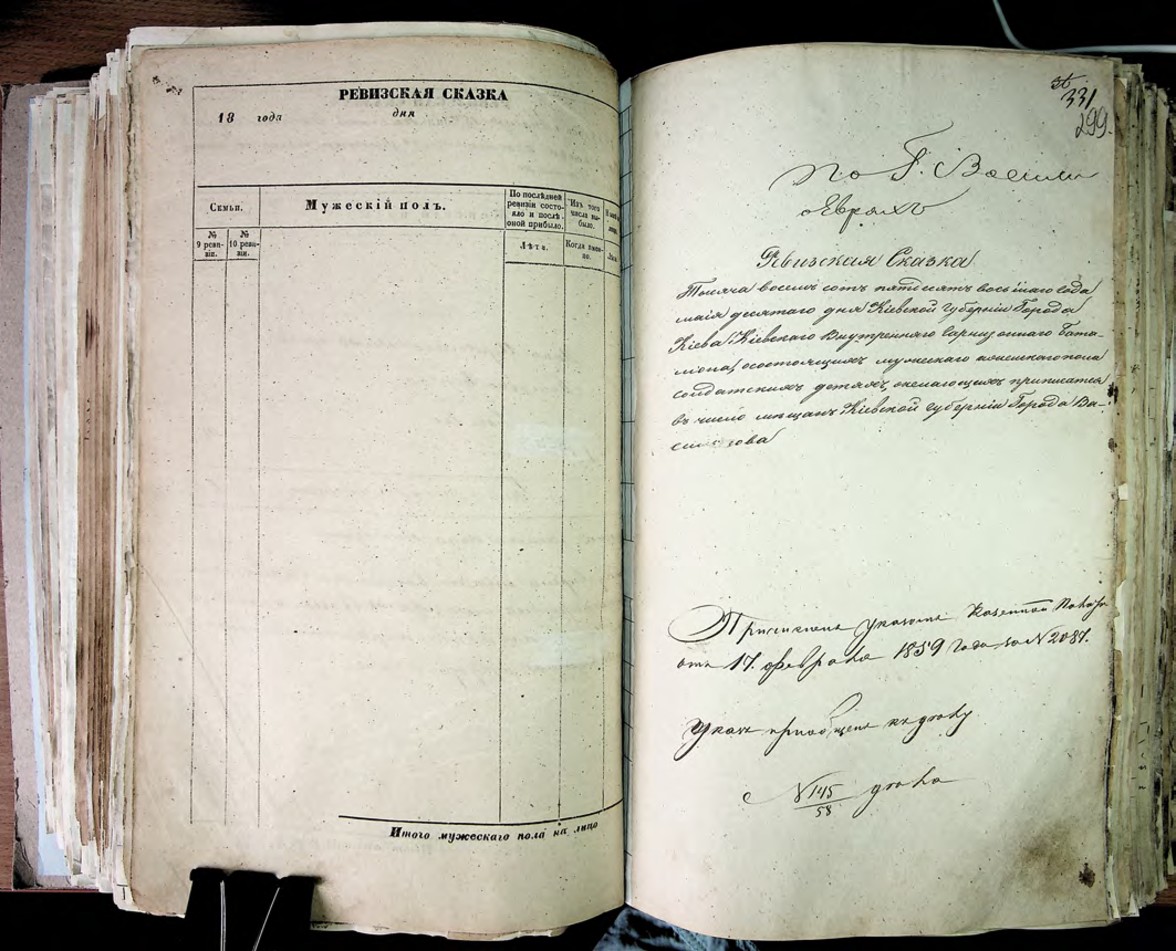 РЕВИЗСКАЯ СКАЗКА
18 года дня
Семьи.
Мужескій полъ.
По послѣдней ревизіи состояло и послѣ оной прибыло.
Изъ того числа выбыло.
№ 9 ревизіи.
№ 10 ревизіи.
Лѣта.
Когда именно.
Итого мужескаго пола на лицо
331
299.
По Г. Василь
о Евреяхъ
Ревизская Сказка
Тысяча восемь сотъ пятдесятъ восьмаго года
маія десятаго дня Кіевской Губерніи Города
Кіева Кіевскаго Внутренняго Гарнизоннаго Бата-
ліона, о состоящихъ мужескаго и женскаго пола
солдатскихъ детяхъ, желающихъ приписатся
въ число мещанъ Кіевской Губерніи Города Ва-
силькова
Причислены указомъ Казенной Палаты
отъ 17. февраля 1859 Года за N 2087.
Указъ пріобщенъ къ дѣлу
N 145/58 дѣла